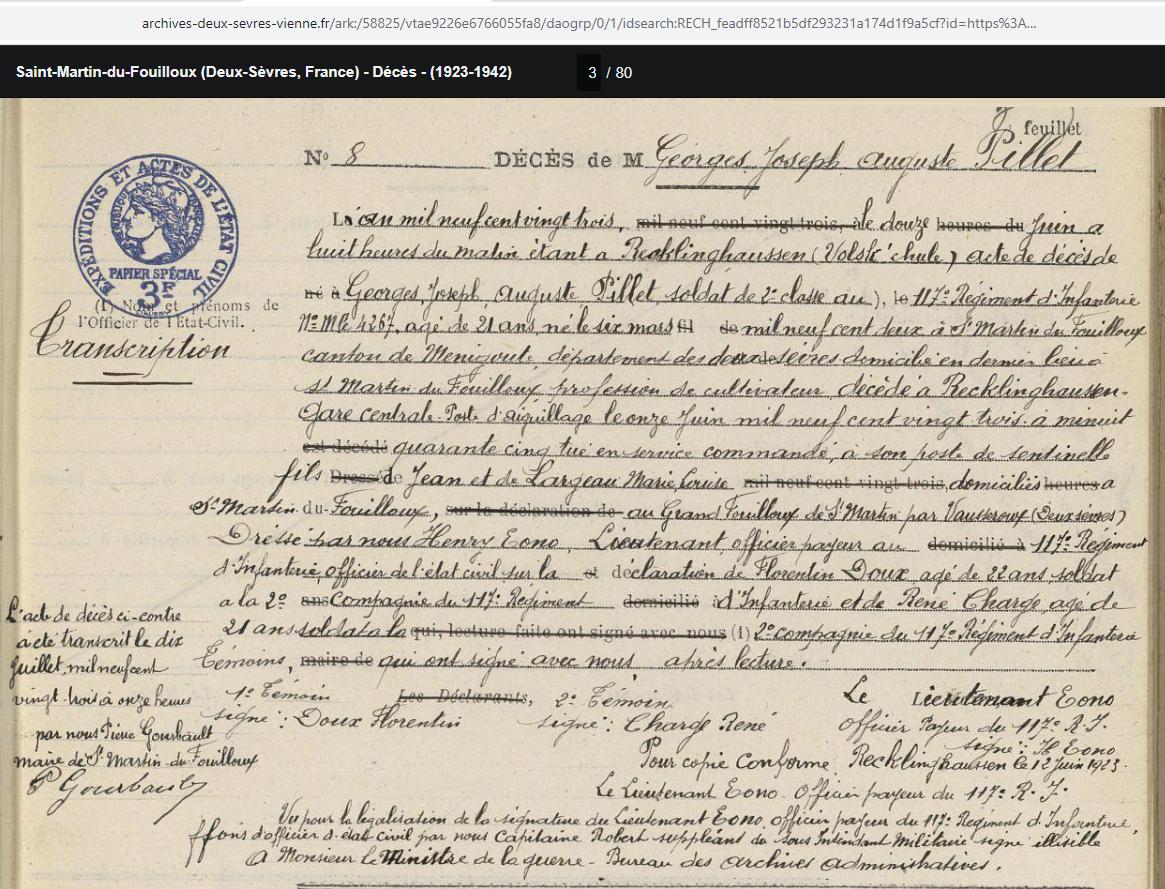 archives-deux-sevres-vienne.fr/ark:/58825/vtae9226e6766055fa8/daogrp/0/1/idsearch:RECH_feadff8521b5df293231a174d1f9a5cf?id=https%3A...
Saint-Martin-du-Fouilloux (Deux-Sèvres, France) - Décès - (1923-1942)
3 / 80
feuillet
N° 8 DÉCÈS de M Georges Joseph Auguste Pillet
EXPÉDITIONS ET ACTES DE L'ÉTAT CIVIL
PAPIER SPÉCIAL
3F
L'an mil neuf cent vingt trois, mil neuf cent vingt-trois, à le douze heures du Juin a
huit heures du matin étant a Recklinghaussen (Volsk'chule) acte de décès de
né à Georges, Joseph, Auguste Pillet, soldat de 2e classe au), le 117e Régiment d'Infanterie
(1) Nom et prénoms de
l'Officier de l'État-Civil.
Transcription
N° Mle 4267, agé de 21 ans, né le six mars fil de mil neuf cent deux à St Martin du Fouilloux
canton de Menigoute, département des deux sèvres domicilié en dernier lieu à
St Martin du Fouilloux profession de cultivateur décèdé à Recklinghausen-
Gare centrale-Poste d'aiguillage le onze Juin mil neuf cent vingt trois à minuit
est décédé quarante cinq tué en service commandé, à son poste de sentinelle
fils Dressé de Jean et de Largeau Marie, Louise mil neuf cent vingt-trois, domiciliés heures a
St Martin-du-Fouilloux, sur la déclaration de au Grand Fouilloux de St Martin par Vausseroux (Deux sèvres)
Dressé par nous Henry Eono, Lieutenant, officier payeur au domicilié à 117e Regiment
d'Infanterie, officier de l'état civil sur la et déclaration de Florentin Doux, agé de 22 ans soldat
a la 2e ans Compagnie du 117e Regiment domicilié à d'Infanterie et de René Chargé, agé de
21 ans soldat a la qui, lecture faite ont signé avec nous (1) 2e compagnie du 117e Régiment d'Infanterie
Témoins, maire de qui ont signé avec nous après lecture.
1er Témoin Les Déclarants, 2e Témoin Le Lieutenant Eono
signé : Doux Florentin signé : Chargé René officier Payeur du 117e R.I.
signé : H Eono
Pour copie Conforme Recklinghaussen le 12 Juin 1923.
Le Lieutenant Eono. Officier payeur du 117e R.I.
L'acte de décès ci-contre
a été transcrit le dix
Juillet, mil neuf cent
vingt-trois à onze heures
par nous Pierre Gourbault
maire de St Martin-du-Fouilloux
P Gourbault
Vu pour la légalisation de la signature du Lieutenant Eono, officier payeur du 117e Regiment d'Infanterie,
ffons d'officier d'état civil par nous Capitaine Robert suppléant du sous Intendant Militaire signé illisible
A Monsieur le Ministre de la guerre - Bureau des archives administratives.